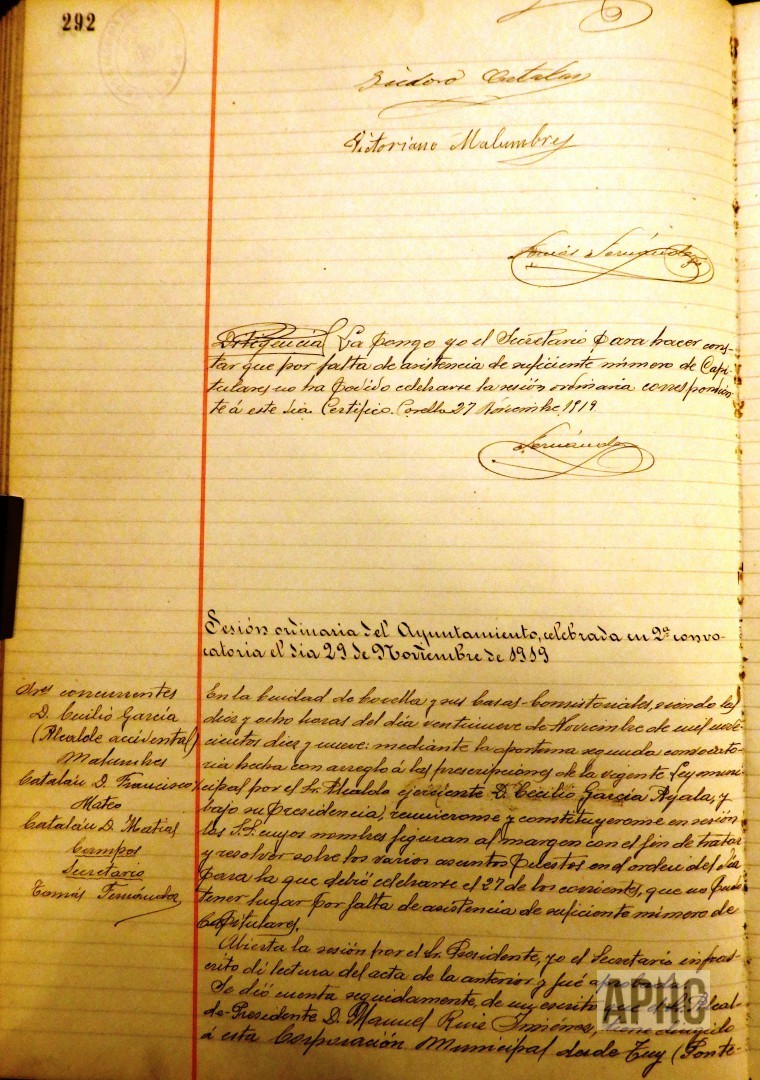 292
Isidoro Catalan
Victoriano Malumbres
Tomás Fernández
Diligencia La pongo yo el Secretario para hacer cons-
tar que por falta de asistencia de suficiente número de Capi-
tulares no ha podido celebrarse la sesión ordinaria correspondien-
te á este dia. Certifico. Corella 27 Noviembre 1919
Fernández
Sesión ordinaria del Ayuntamiento, celebrada en 2ª convo-
catoria el dia 29 de Noviembre de 1919
Sres concurrentes
D. Cecilio García
(Alcalde accidental)
Malumbres
Catalán D. Francisco
Mateo
Catalán D. Matias
Campos
Secretario
Tomás Fernández
En la Ciudad de Corella y sus Casas-Consistoriales, siendo las
diez y ocho horas del día veintinueve de Noviembre de mil nove-
cientos diez y nueve: mediante la oportuna segunda convocato-
ria hecha con arreglo á las prescripciones de la vigente Ley muni-
cipal por el Sr. Alcalde ejerciente D. Cecilio García Ayala, y
bajo su Presidencia, reunieronse y constituyeronse en sesión
los S.S. cuyos nombres figuran al margen con el fin de tratar
y resolver sobre los varios asuntos puestos en el orden del dia
para la que debió celebrarse el 27 de los corrientes, que no pudo
tener lugar por falta de asistencia de suficiente número de
Capitulares.
Abierta la sesión por el Sr. Presidente, yo el Secretario infras-
crito dí lectura del acta de la anterior y fué aprobada.
Se dió cuenta seguidamente, de un escrito que el Sr. Alcal-
de-Presidente D. Manuel Ruiz Jimenez, tiene dirigido
á esta Corporación Municipal desde Tuy (Ponte-
APHC